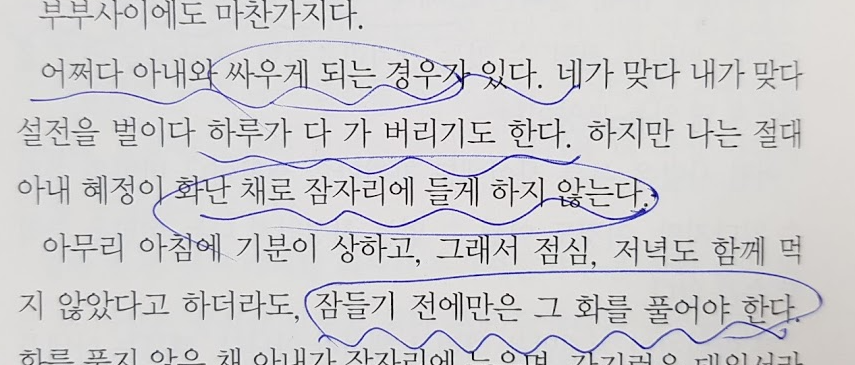 부부사이에도 마찬가지다.
어쩌다 아내와 싸우게 되는 경우가 있다. 네가 맞다 내가 맞다
설전을 벌이다 하루가 다 가 버리기도 한다. 하지만 나는 절대
아내 혜정이 화난 채로 잠자리에 들게 하지 않는다.
아무리 아침에 기분이 상하고, 그래서 점심, 저녁도 함께 먹
지 않았다고 하더라도, 잠들기 전에만은 그 화를 풀어야 한다.
화를 풀지 않은 채 아내가 잠자리에